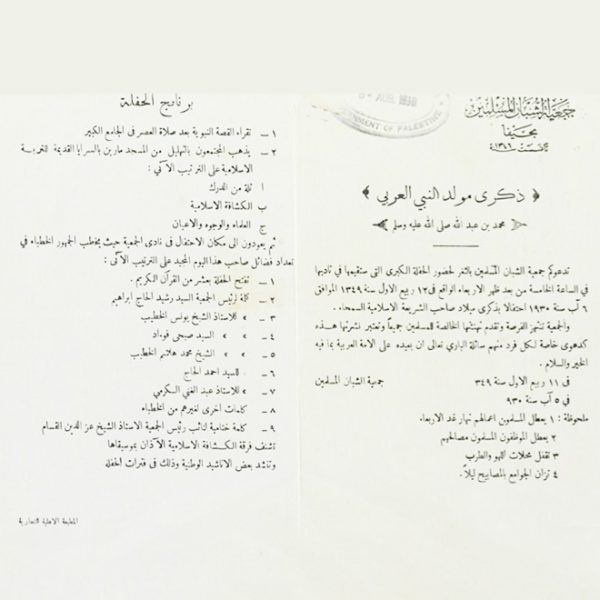 جمعية الشبان المسلمين
بحيفا
تأسست ١٣٤٦
﴿ ذكرى مولد النبي العربي ﴾
محمد بن عبد الله صلى الله عليه وسلم
تدعوكم جمعية الشبان المسلمين بالثغر لحضور الحفلة الكبرى التى ستقيمها في ناديها
في الساعة الخامسة من بعد ظهر الاربعاء الواقع فى ١٢ ربيع الاول سنة ١٣٤٩ الموافق
٦ آب سنة ١٩٣٠ احتفالا بذكرى ميلاد صاحب الشريعة الاسلامية السمحاء .
والجمعية تنتهز الفرصة وتقدم تهنئتها الخالصة للمسلمين جميعاً وتعتبر نشرتها هذه
كدعوى خاصة لكل فرد منهم سائلة الباري تعالى ان يعيده على الامة العربية بما فيه
الخير والسلام .
فى ١١ ربيع الاول سنة ٣٤٩ جمعية الشبان المسلمين
في ٥ آب ٩٣٠
ملحوظة : ١ يعطل المسلمون اعمالهم نهار غد الاربعاء
٢ يعطل الموظفون المسلمون مصالحهم
٣ تقفل محلات اللهو والطرب
٤ تزان الجوامع بالمصابيح ليلاً .
AUG 1930
GOVERNMENT OF PALESTINE
برنامج الحفلة
١ – تقراء القصة النبوية بعد صلاة العصر فى الجامع الكبير
٢ – يذهب المجتمعون بالتهليل من المسجد مارين بالسرايا القديمة
الاسلامية على الترتيب الآتي :
ا ثلة من الدرك
ب الكشافة الاسلامية
ج العلماء والوجوه والاعيان
ثم يعودون الى مكان الاحتفال فى نادى الجمعية حيث يخطب الجمهور الخطباء في
تعداد فضائل صاحب هذا اليوم المجيد على الترتيب الآتى :
١ – تفتح الحفلة بعشر من القرآن الكريم .
٢ – كلمة لرئيس الجمعية السيد رشيد الحاج ابراهيم
٣ – » للاستاذ الشيخ يونس الخطيب
٤ – » » السيد صبحى
٥ – » » الشيخ محمد هاشم الخطيب
٦ – » للسيد احمد الحاج
٧ – » للاستاذ عبد الغني الكرمي
٨ – كلمات اخرى لغيرهم من الخطباء
٩ – كلمة ختامية لنائب رئيس الجمعية الاستاذ الشيخ عز الدين القسام
تشنف فرقة الكشافة الاسلامية الآذان بموسيقاها
وتنشد بعض الاناشيد الوطنية وذلك فى فترات الحفلة
المطبعة الاهلية التجارية